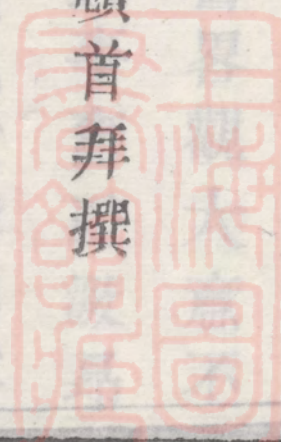 頓首拜撰
上海圖
書館藏